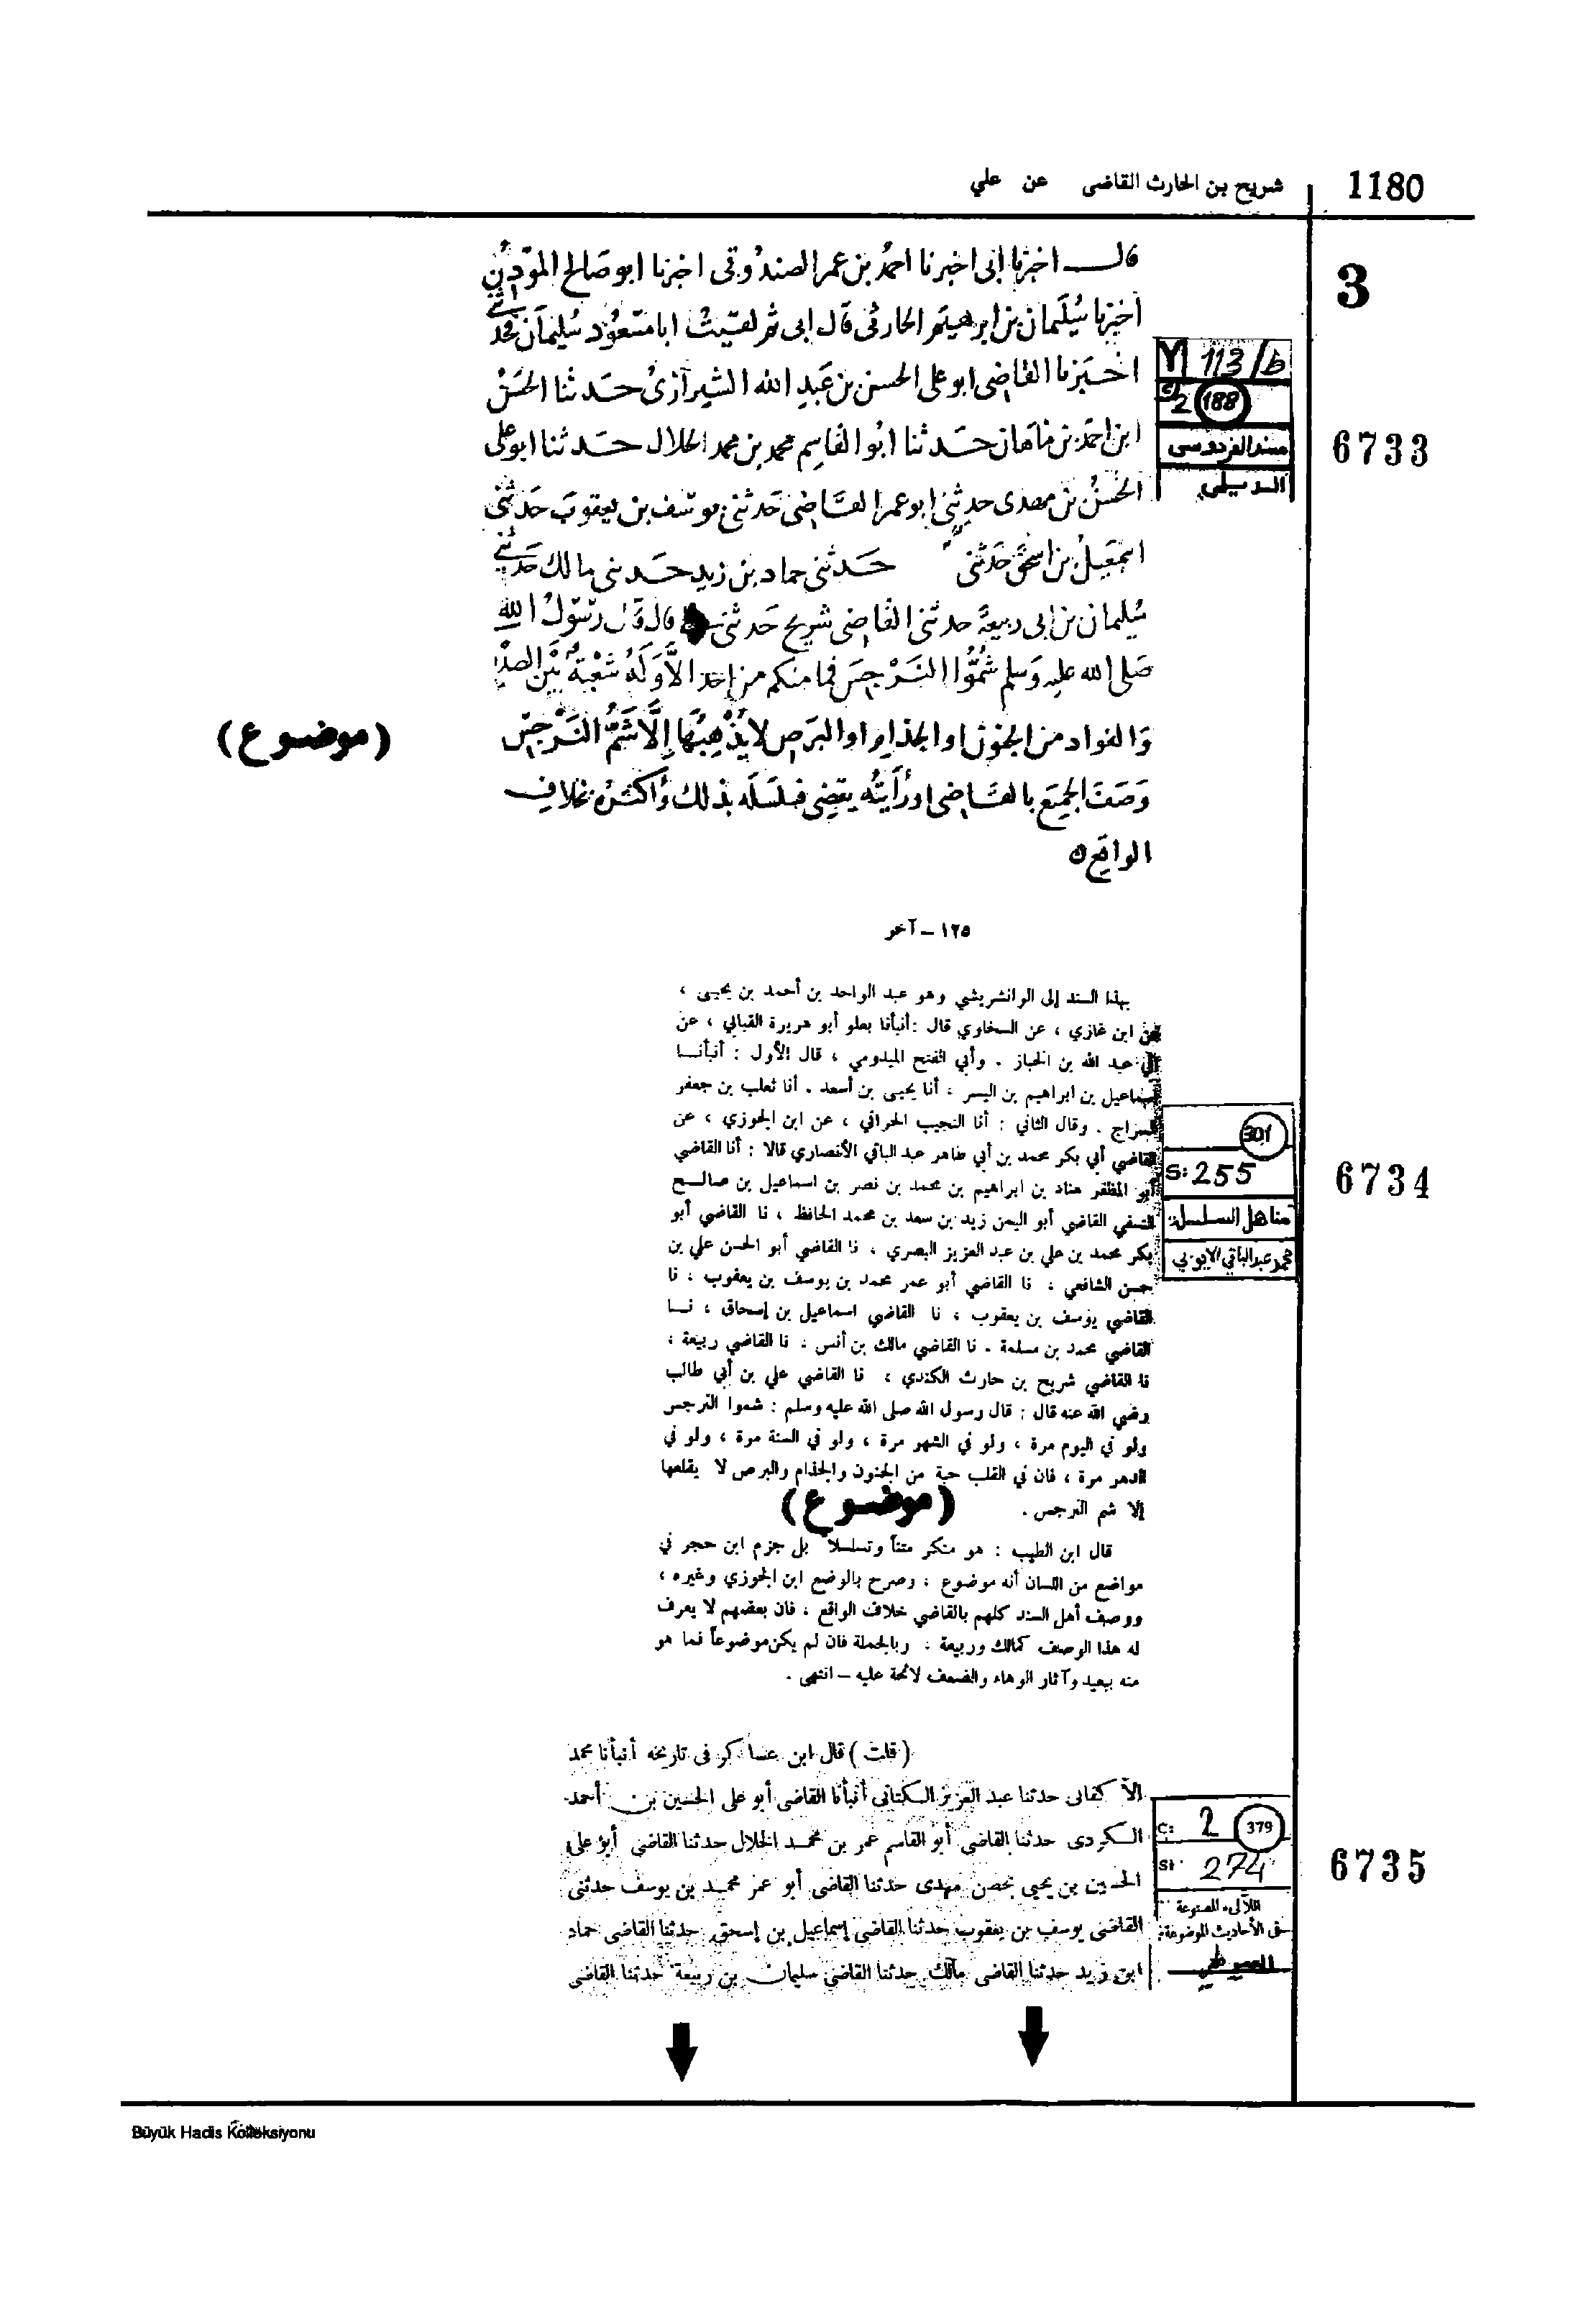 1180
شريح بن الحارث القاضى عن علي
3
قال اخبرنا ابى اخبرنا احمد بن عمر الصندوقى اخبرنا ابو صالح المؤذن
اخبرنا سليمان بن ابرهيم الحارثى قال ابى ثم لقيت ابا مسعود سليمان فحدثنى
اخبرنا القاضى ابو على الحسن بن عبد الله الشيرازى حدثنا الحسن
ابن احمد بن ماهان حدثنا ابو القاسم محمد بن محمد الحلال حدثنا ابو على
الحسن بن مهدى حدثنى ابو عمر القاضى حدثنى يوسف بن يعقوب حدثنى
اسمعيل بن اسحق حدثنى حدثنى حماد بن زيد حدثنى مالك حدثنى
سليمان بن ابى ربيعة حدثنى القاضى شريح حدثنى قال قال رسول الله
صلى الله عليه وسلم شموا النرجس فما منكم من احد الا وله شعبة بين الصدر
والفواد من الجنون او الجذام او البرص لا يذهبها إلا شم النرجس
وصف الجميع بالقاضى بذلك واكثره بخلاف
الواقع
(موضوع)
Y 113/b
S/2 188
مسند الفردوسى
الديلمي
6733
١٢٥ – آخر
بهذا السند إلى الوانشريشي وهو عبد الواحد بن أحمد بن يحيى ،
عن ابن غازي ، عن السخاوي قال : أنبأنا بعلو أبو هريرة القبالي ، عن
أبي عبد الله بن الخباز . وأبي الفتح الميدومي ، قال الأول : أنبأنـا
إسماعيل بن ابراهيم بن اليسر ، أنا يحيى بن أسعد . أنا ثعلب بن جعفر
السراج . وقال الثاني : أنا النجيب الحراني ، عن ابن الجوزي ، عن
القاضي أبي بكر محمد بن أبي طاهر عبد الباقي الأنصاري قالا : أنا القاضي
أبو المظفر هناد بن ابراهيم بن محمد بن نصر بن اسماعيل بن صالـح
النسفي القاضي أبو اليمن زيد بن سعد بن محمد الحافظ ، نا القاضي أبو
بكر محمد بن علي بن عبد العزيز البصري ، نا القاضي أبو الحسن علي بن
حسن الشافعي ، نا القاضي أبو عمر محمد بن يوسف بن يعقوب ، نا
القاضي يوسف بن يعقوب ، نا القاضي اسماعيل بن إسحاق ، نـا
القاضي محمد بن مسلمة . نا القاضي مالك بن أنس ، نا القاضي ربيعة ،
نا القاضي شريح بن حارث الكندي ، نا القاضي علي بن أبي طالب
رضي الله عنه قال : قال رسول الله صلى الله عليه وسلم : شموا النرجس
ولو في اليوم مرة ، ولو في الشهر مرة ، ولو في السنة مرة ، ولو في
الدهر مرة ، فان في القلب حبة من الجنون والجذام والبرص لا يقلعها
إلا شم النرجس .
(موضوع)
301
S: 255
مناهل السلسلة
محمد عبد الباقي الايوبي
6734
قال ابن الطيب : هو منكر متناً وتسلسلاً بل جزم ابن حجر في
مواضع من اللسان أنه موضوع ، وصرح بالوضع ابن الجوزي وغيره ،
ووصف أهل السند كلهم بالقاضي خلاف الواقع ، فان بعضهم لا يعرف
له هذا الوصف كمالك وربيعة ، وبالجملة فان لم يكن موضوعاً فما هو
منه ببعيد وآثار الوهاء والضعف لائحة عليه – انتهى .
(قلت) قال ابن عساكر فى تاريخه أنبأنا محمد
الأكفانى حدثنا عبد العزيز الكتانى أنبأنا القاضى أبو على الحسين بن أحمد
الكردى حدثنا القاضى أبو القاسم عمر بن محمد الخلال حدثنا القاضى أبو على
الحسين بن يحيى بحصن مهدى حدثنا القاضى أبو عمر محمد بن يوسف حدثنى
القاضى يوسف بن يعقوب حدثنا القاضى إسماعيل بن إسحق حدثنا القاضى حماد
ابن زيد حدثنا القاضى مالك حدثنا القاضى سليمان بن ربيعة حدثنا القاضى
C: 2 379
S: 274
اللآلىء المصنوعة
فى الأحاديث الموضوعة
السيوطي
6735
Büyük Hadis Kolleksiyonu